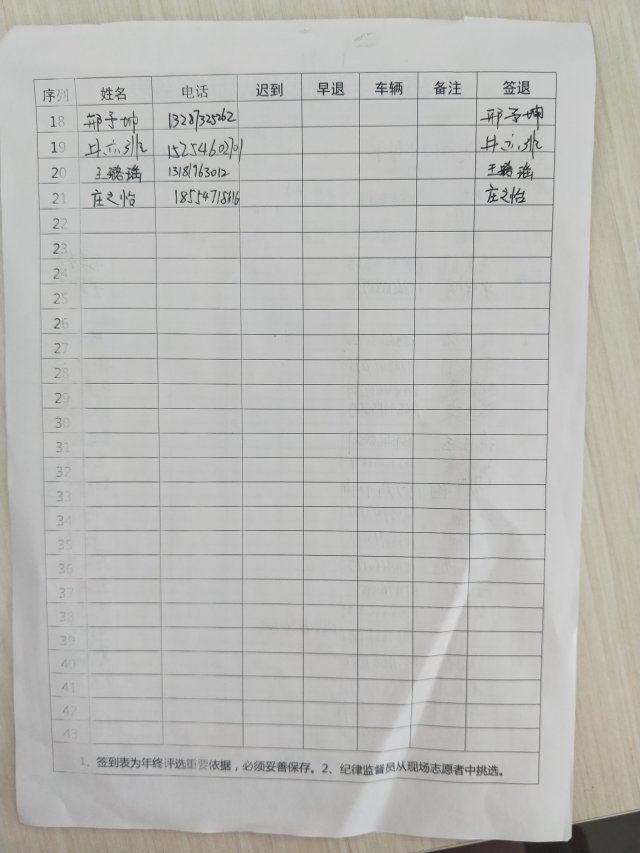 序列 姓名 电话 迟到 早退 车辆 备注 签退
18 邢子坤 13287325262 邢子坤
19 15254602701
20 王璐瑶 13181963012 王璐瑶
21 庄之怡 庄之怡
22
23
24
25
26
27
28
29
30
31
32
33
34
35
36
37
38
39
40
41
42
43
1、签到表为年终评选重要依据，必须妥善保存。2、纪律监督员从现场志愿者中挑选。